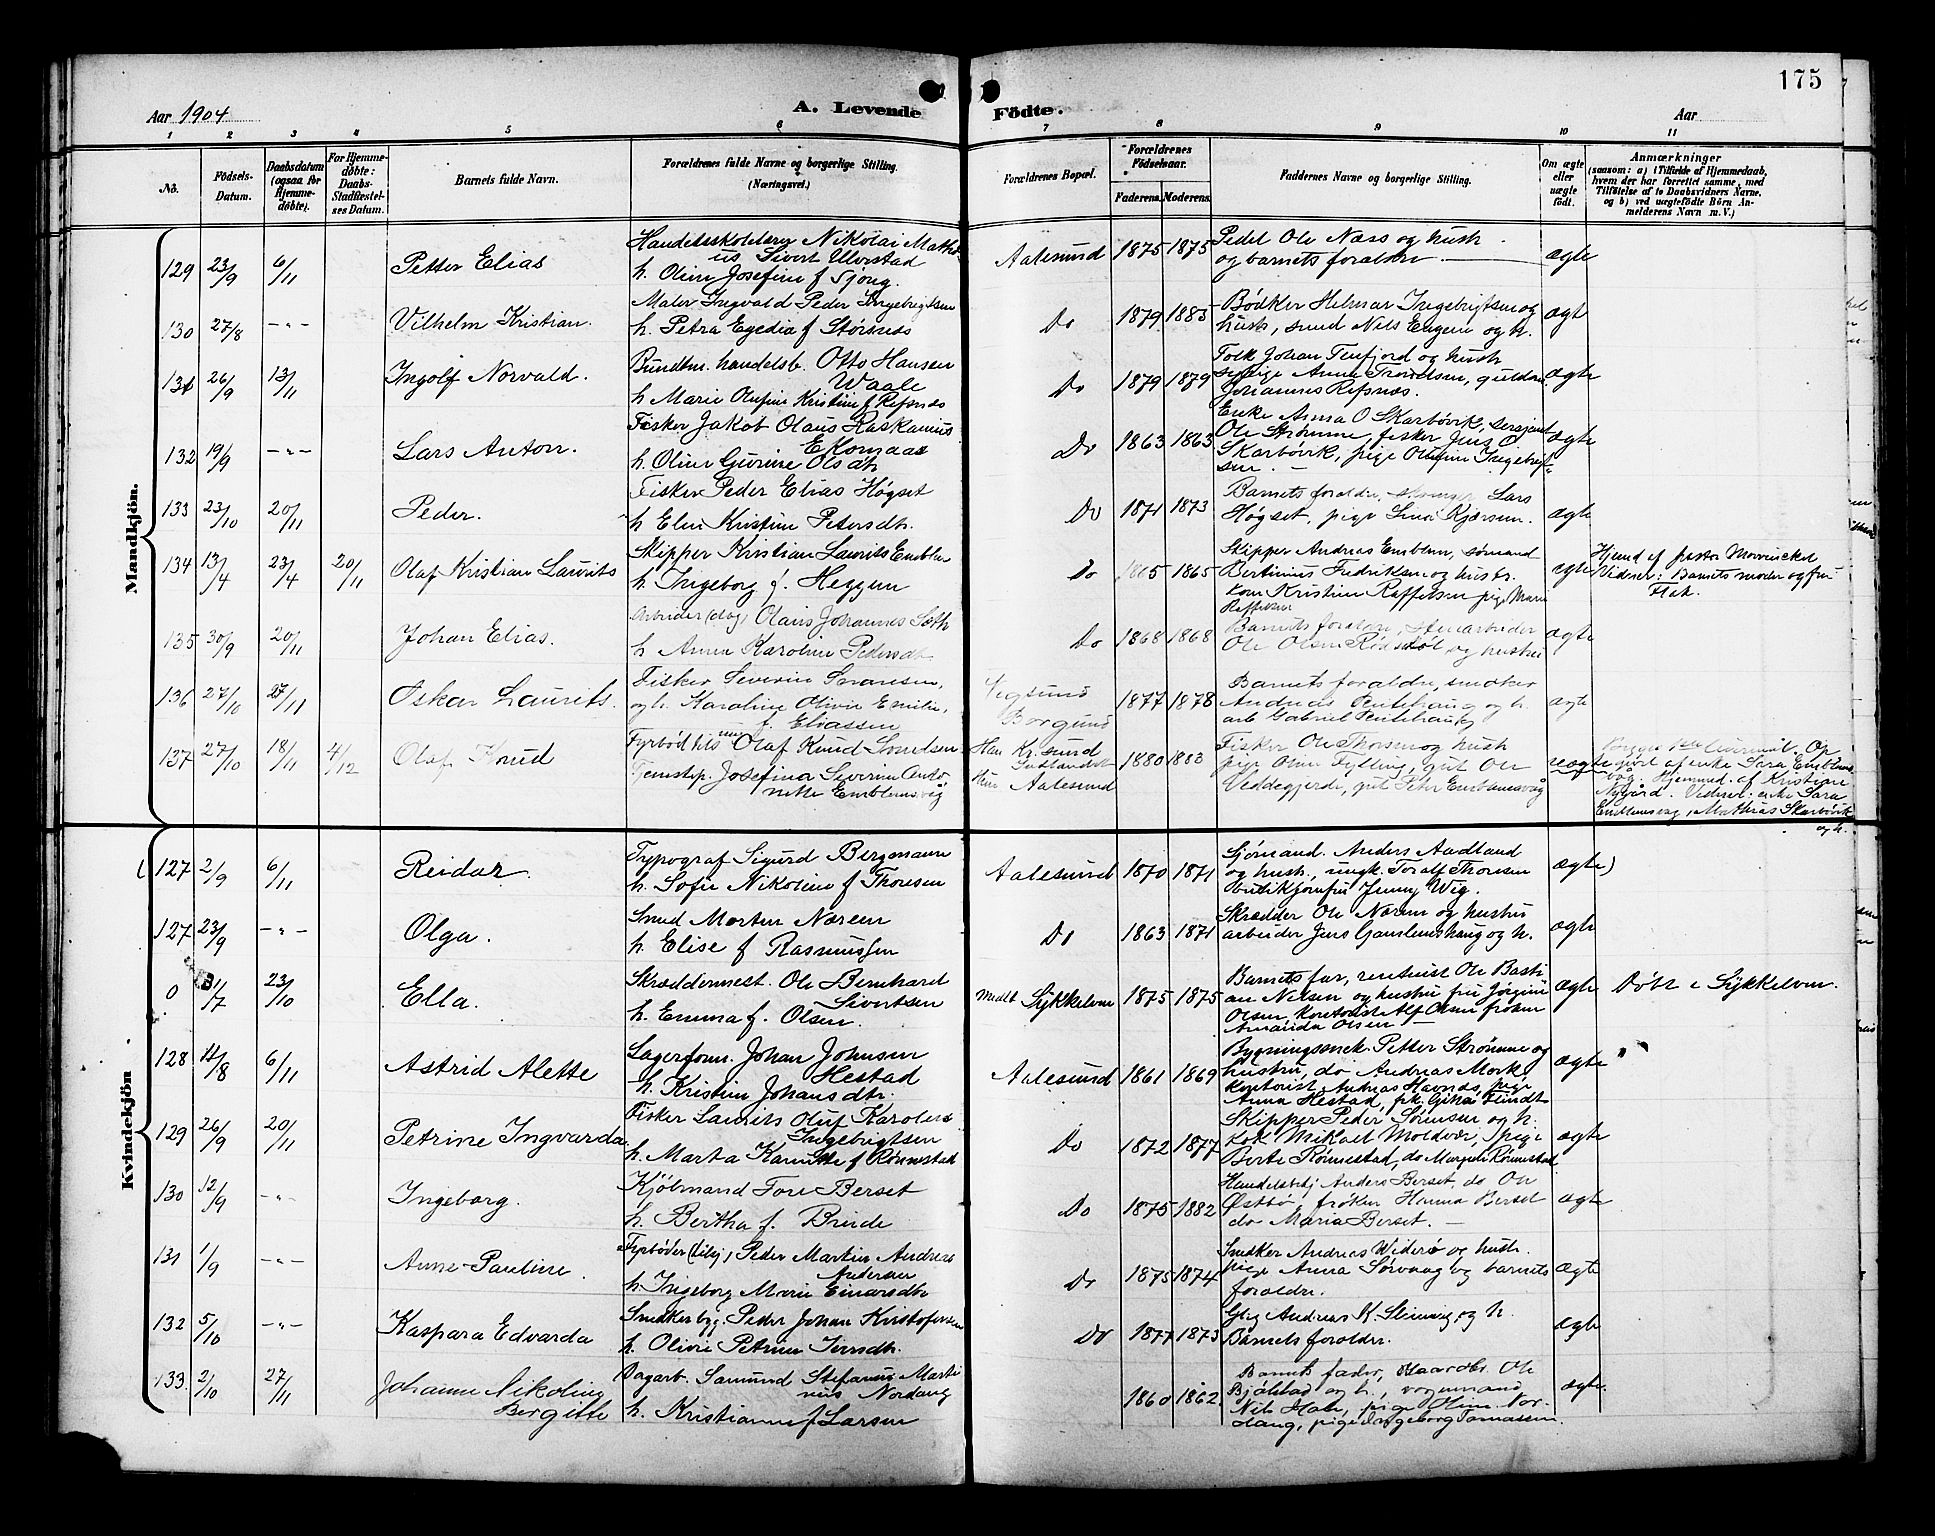 175
Aar 1904
A. Levende
Födte.
Aar
1 2 3 4 5 6 7 8 9 10 11
No.
Födsels-Datum.
Daabsdatum (ogsaa for Hjemme-døbte).
For Hjemme-døbte: Daabs-Stadfæstel-ses Datum.
Barnets fulde Navn.
Forældrenes fulde Navne og borgerlige Stilling.
(Næringsvei.)
Forældrenes Bopæl.
Forældrenes Födselsaar.
Faderens. Moderens.
Faddernes Navne og borgerlige Stilling.
Om ægte eller uægte født.
Anmærkninger
(saasom: a) i Tilfælde af Hjemmedaab,
hvem der har forrettet samme, med
Tilføielse af to Daabsvidners Navne.
og b) ved uægtefödte Börn An-
melderens Navn m. V.)
Mandkjön.
129 23/9 6/11 Petter Elias
Handelsskolelærer Nikolai Math
us Sivert Ulvestad
h. Oline Josefine f Sjong.
Aalesund 1875 1875
Pedel Ole Næss og hust
og barnets forældre
ægte
130 27/8 -"- Vilhelm Kristian.
Maler Ingvald Peder Ingebrigtsen
h. Petra Egedia f Størsnes
Do 1879 1883
Bødker Helmar Ingebrigtsen og
hust, smed Nils Eugen og h.
ægte
131 26/9 13/11 Ingolf Norvald.
Bundtm. handelsb. Otto Hansen
Waale
h Marie Olufine Kristine f Refsnes
Do 1879 1879
Tolk Johan Tenfjord og hust
Johannes Refsnæs.
ægte
132 19/9 -"- Lars Anton.
Fisker Jakob Olaus Raskanius
Ekornaas
h. Oline Gurine Olsdtr
Do 1863 1863
Enke Anna O Skarbøvik, sersjant
Ole Strømme, fisker Jens O
Skarbøvik, pige Olufine Ingebrigt-
sen.
ægte
133 23/10 20/11 Peder.
Fisker Peder Elias Høgset
h Eline Kristine Petersdtr.
Do 1871 1873
Barnets forældre, Lars
Høgset, pige Lina Kjærsem.
ægte
134 13/4 23/4 20/11 Olaf Kristian Laurits
Skipper Kristian Laurits Emblem
h. Ingeborg f. Heggem
Do 1865 1865
Skipper Andreas Emblem, sømand
Bertinius Fredriksen og hustr.
Kristine Raffelsen pige Marie
Raffelsen
ægte
Hjemd af pastor Morvinckel
Vidner: Barnets moder og fru
Flak.
135 30/9 20/11 Johan Elias.
Arbeider (dag) Olaus Johannes Sæth
h Anna Karoline Pedersdt
Do 1868 1868
Barnets forældre, stenarbeider
Ole Olsen og hustru
ægte
136 27/10 27/11 Oskar Laurits.
Fisker Severin Sørensen,
og h. Karoline Olivie Emilie,
f. Eliassen
Vegsund
Borgund
1877 1878
Barnets forældre, snedker
Andreas Peutehaug og h.
arb Gabriel Peutehaug
ægte
137 27/10 18/11 4/12 Olaf Knud
Fyrbød Olaf Knud Sværdsen
Tjenestep. Josefina Severine Anto
nette Emblemsvåg
Han Kr.sund
Hun Aalesund
1880 1883
Fisker Ole Thorsen og hust
pige Olina Fylling, gut Ole
Veddegjerde, gut Peter Emblemsvåg
uægte
Begge 1ste leiermål. Op
gjort af enke Sara Emblems-
våg. Hjemmd. af Kristiane
Nygård. Vidner: enke Sara
Emblemsvåg, Mathias Skarbøvik
og h.
Kvindekjön
(127 2/9 6/11 Reidar.
Typograf Sigurd Bergmann
h. Sofie Nikoline f Thoresen
Aalesund 1870 1871
Sjømand. Anders Aadland
og hust., ungk. Toralf Thoresen
butikjomfru Jenny Wiig.
ægte)
127 23/9 -"- Olga.
Smed Morten Næreem
h. Elise f Rasmussen
Do 1863 1871
Skrædder Ole Nærem og hustru
arbeider Jens Gauslemshaug og h.
ægte
0 31/7 23/10 Ella.
Skræddermest. Ole Bernhard
Sivertsen
h. Emma f. Olsen.
Sykkelven 1875 1875
Barnets far, Ole Basti
an Nilsen og hustru fru Jørgine
Olsen, kontorist Alf Olsen frøken
Amanda Olsen
ægte
Døbt i Sykkelven.
128 11/8 6/11 Astrid Alette
Lagerform. Johan Johnsen
Hestad
h. Kristine Johansdtr.
Aalesund 1861 1869
Bygningssnek. Petter Strømme og
hustru, do Andreas Mork,
kontorist Andreas Havnes, pige
Anna Hestad, frk. Gina Fundt
ægte
129 26/9 20/11 Petrine Ingvarda
Fisker Laurits Oluf Karolius
Ingebrigtsen
h. Marta Kanutte f Rønnestad
Do 1872 1877
Skipper Peder Sørensen og h.
kok Mikael Moldvær, pige
Berte Rønnestad, do Margrete Rønnestad
ægte
130 12/9 -"- Ingeborg.
Kjöbmand Tore Berset
h. Bertha f. Brude
Do 1875 1882
Handelsbetj Anders Berset, do Ole
Østbø, frøken Hanna Berset
do Maria Berset.
ægte
131 1/9 -"- Anne Pauline.
Fyrbøder Peder Martin Andreas
Andersen
h Ingeborg Marie Einarsdtr
Do 1875 1874
Snedker Andreas Widerø og hust.
pige Anna Sørvaag og barnets
forældre.
ægte
132 5/10 -"- Kaspara Edvarda
Snedker Peder Johan Kristofersen
h. Olivie Petrine Iversdtr.
Do 1877 1873
Andreas K. Steinvig og h.
Barnets forældre.
ægte
133. 2/10 27/11 Johanne Nikoline
Bergitte
Dagarb. Samund Stefanus Marti
nus Nordang
h. Kristianne f Larsen
1860 1862.
Barnets fader, Ole
Bjølstad og h., vognmand
Nils pige Oline Nor-
dang, pige Ingeborg Tomassen.
ægte.